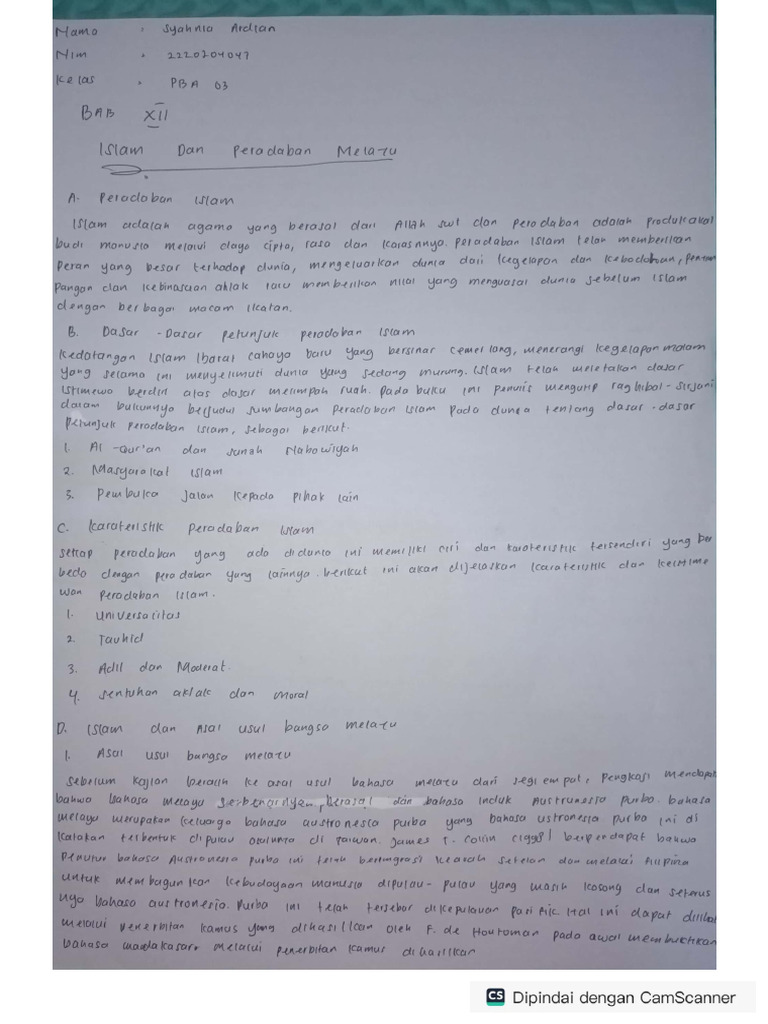 Nama : Syahnia Ardian
Nim : 2220204047
Kelas : PBA 03
BAB XII
Islam Dan Peradaban Melayu
A. Peradaban Islam
Islam adalah agama yang berasal dari Allah swt dan Peradaban adalah produk akal
budi manusia melalui daya cipta, rasa dan karasnnya. peradaban Islam telah memberikan
Peran yang besar terhadap dunia, mengeluarkan dunia dari kegelapan dan kebodohan,
pangan dan kebinasaan aklak lalu memberikan nilai yang menguasai dunia sebelum Islam
dengan berbagai macam ikatan.
B. Dasar - Dasar petunjuk peradaban Islam
Kedatangan Islam ibarat cahaya baru yang bersinar cemerlang, menerangi kegelapan malam
yang selama ini menyelimuti dunia yang sedang murung. Islam telah meletakan dasar
istimewa berdiri atas dasar melimpah ruah. pada buku ini penulis mengutip raghibal-sirjani
dalam bukunnya berjudul sumbangan Peradaban Islam Pada dunea tentang dasar-dasar
petunjuk peradaban Islam, sebagai berikut.
1. Al -Qur'an dan sunah Nabawiyah
2. Masyarakat Islam
3. Pembuka jalan kepada pihak lain
C. karateristik peradaban Islam
setiap peradaban yang ada didunia ini memiliki ciri dan karateristik tersendiri yang ber
beda dengan peradaban yang lainnya. berikut ini akan dijelaskan karateristik dan keistime
wan peradaban Islam.
1. Universalitas
2. Tauhid
3. Adil dan Moderat.
4. sentuhan aklak dan moral
D. Islam dan Asal usul bangsa melayu
1. Asal usul bangsa melayu
sebelum kajian beralih ke asal usul bahasa melayu dari segi empat, pengkaji mendapat
bahwa bahasa melayu sebenarnya berasal dari bahasa induk Austrunesia purba. bahasa
melayu merupakan keluarga bahasa austronesia purba yang bahasa ustronesia purba ini di
katakan terbentuk dipulau di Taiwan. James T. Collin berpendapat bahwa
Penutur bahasa Austronesia purba ini telah bermigrasi kearah selatan dan melalui Filipina
untuk membagunkan kebudayaan manusia dipulau-pulau yang masih kosong dan seterus
nya bahasa austronesia. Purba ini telah tersebar dikepulauan pasific. Hal ini dapat dilihat
melalui penerbitan kamus yang dihasilkan oleh F. de Houtoman pada awal membuktikan
bahasa madakasarr melalui penerbitan kamus dihasilkan
CS Dipindai dengan CamScanner